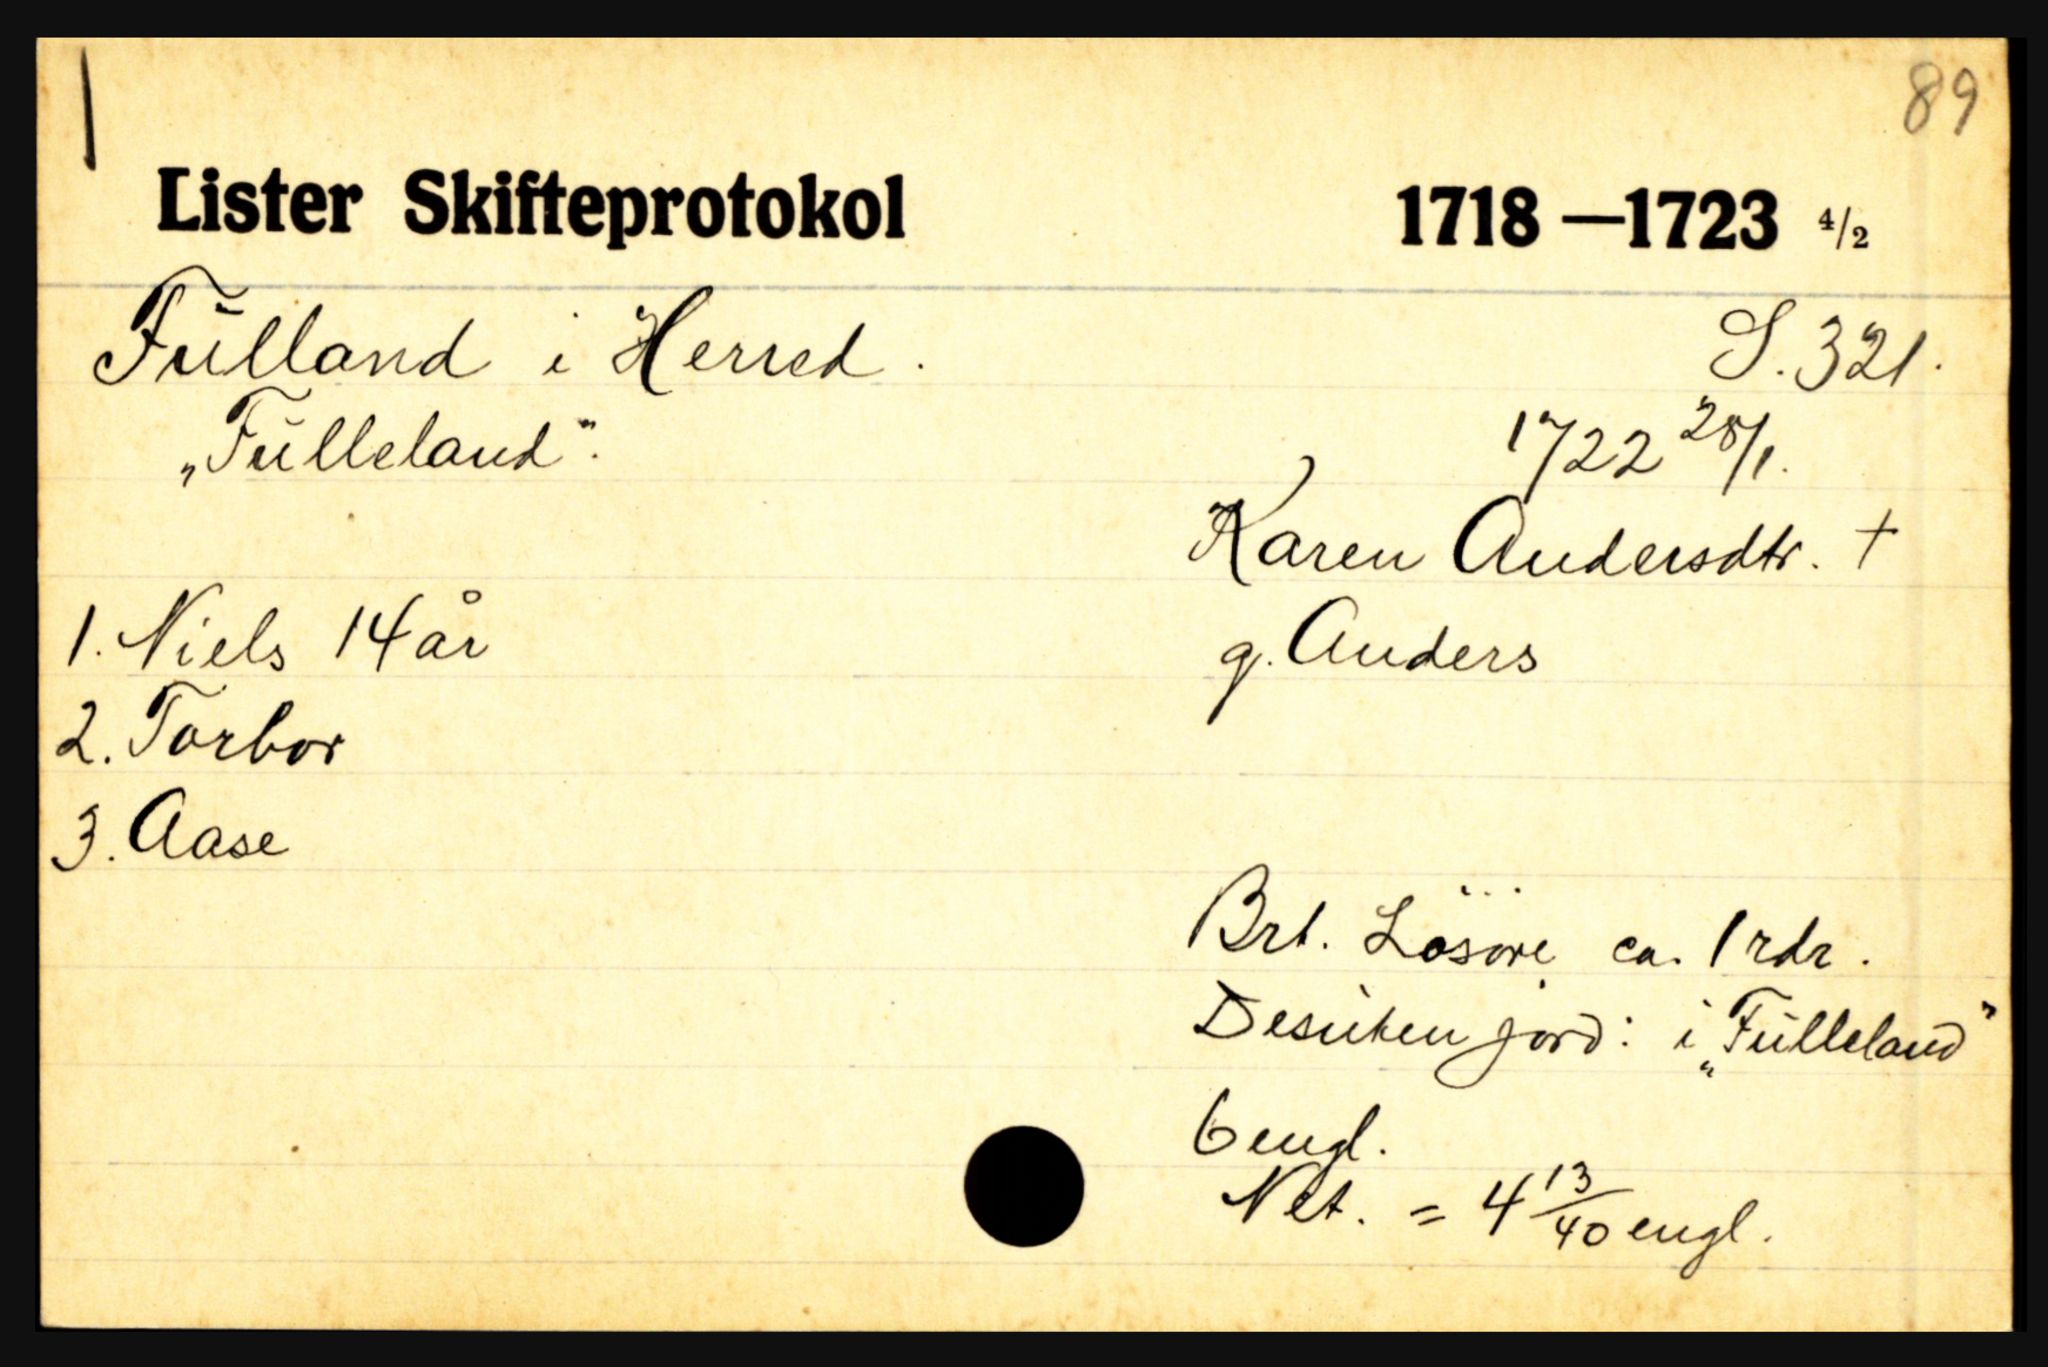 89
Lister Skifteprotokol 1718—1723 4/2
Fülland i Herred. S. 321.
„Fülleland“. 1722 28/1.
Karen Andersdtr. +
1. Niels 14 år g. Anders
2. Torbor
3. Aase
Brt. Lösöre ca. 1 rdr.
Desuten jord: i „Fülleland“
6 engl.
Net. = 4 13/40 engl.